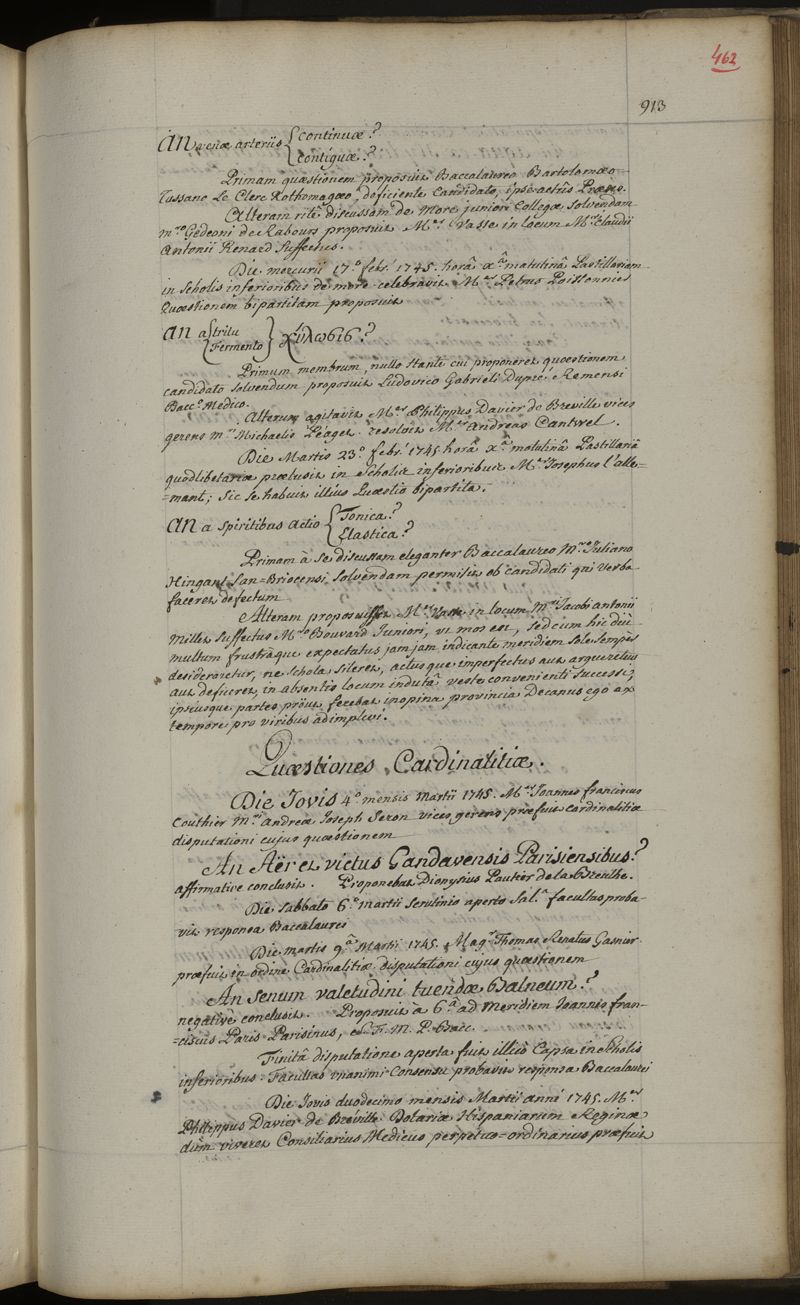 462
913
An venæ arteriis { continuæ?
contiguæ?
Primam quæstionem proposuit Baccalaureo Bartolomæo
Tussano Le Clerc Rothomagæo, deficiente candidato, ipse actûs Præses.
Alteram ritè discussam de more juniori Collegæ solvendam
M.ro Gedeoni de Rabours proposuit M.er Vasse in locum M.ri Claudii
Antonii Renard suffectus.
Die mercurii 17.o feb.ri 1745. horâ x.â matutinâ Pastillariam
in scholis inferioribus de more celebravit M.er Petrus Poissonnier
Quæstionem bipartitam proposuit
An a { stritu
Fermento } χύλωσις?
Primum membrum, nullo stante cui proponeret quæstionem
candidato solvendum proposuit Ludovico Gabrieli Dupré Remensi
Bacc.o Medico.
Alterum agitavit M.er Philippus Davier de Breville vices
gerens M.ri Michaelis Léaget. resolvit M.er Andreas Cantwel.
Die Martis 23.o feb.ri 1745 horâ x.â matutinâ Pastillariâ
quodlibetariæ prælusit in scholis inferioribus M.er Josephus l'alle=
=mant; sic se habuit illius Quæstio bipartita.
An a spiritibus actio { Tonica?
Elastica?
Primam à se discussam eleganter Baccalaureo M.ro Juliano
Hingant San=Briocensi solvendam permisit ob candidati qui verba
faceret defectum
Alteram proposuisset M.er Vasse in locum M.ri Jacobi antonii
Millet suffectus M.ro Bouvard Juniori, ut mos est, sed cum hic diù
multum frustràque expectatus jamjam indicante meridiem sole semper
desideraretur, ne schola sileret, actusque imperfectus aut argueretur
aut deficeret, in absentis locum indutâ veste convenienti successi,
ipsiusque partes prout ferebat inopina provincia Decanus ego ex
tempore pro viribus adimplevi.
Quæstiones Cardinalitiæ.
Die Jovis 4.o mensis Martii 1745. M.er Joannes franciscus
Couthier M.ri Andreæ Joseph Seron vices gerens præfuit cardinalitiæ
disputationi cujus quæstionem
An Aër et victus Gandavensis Parisiensibus?
affirmative conclusit. Proponebat Dionysius Pautier de la Breuille.
Die sabbato 6.o martii scrutinio aperto Sal. facultas proba-
vit responsa Baccalaurei
Die martis 9.â Martii 1745. Mag.er Thomas Renatus Gasnier
præfuit in ordine Cardinalitiæ disputationi cujus quæstionem
An senum valetudini tuendæ Balneum?
negativè conclusit. Proposuit à 6.â ad meridiem Joannes fran-
=ciscus Paris Parisinus, F. M. P. Bacc.
Finitâ disputatione aperta fuit illicò Capsa in scholis
inferioribus: Facultas unanimi consensu probavit responsa Baccalaurei
Die Jovis duodecimo mensis Martii anni 1745. M.er
Philippus Davier de Bréville Dotariæ Hispaniarum Reginæ
dum viveret Consiliarius Medicus perpetuo=ordinarius præfuit